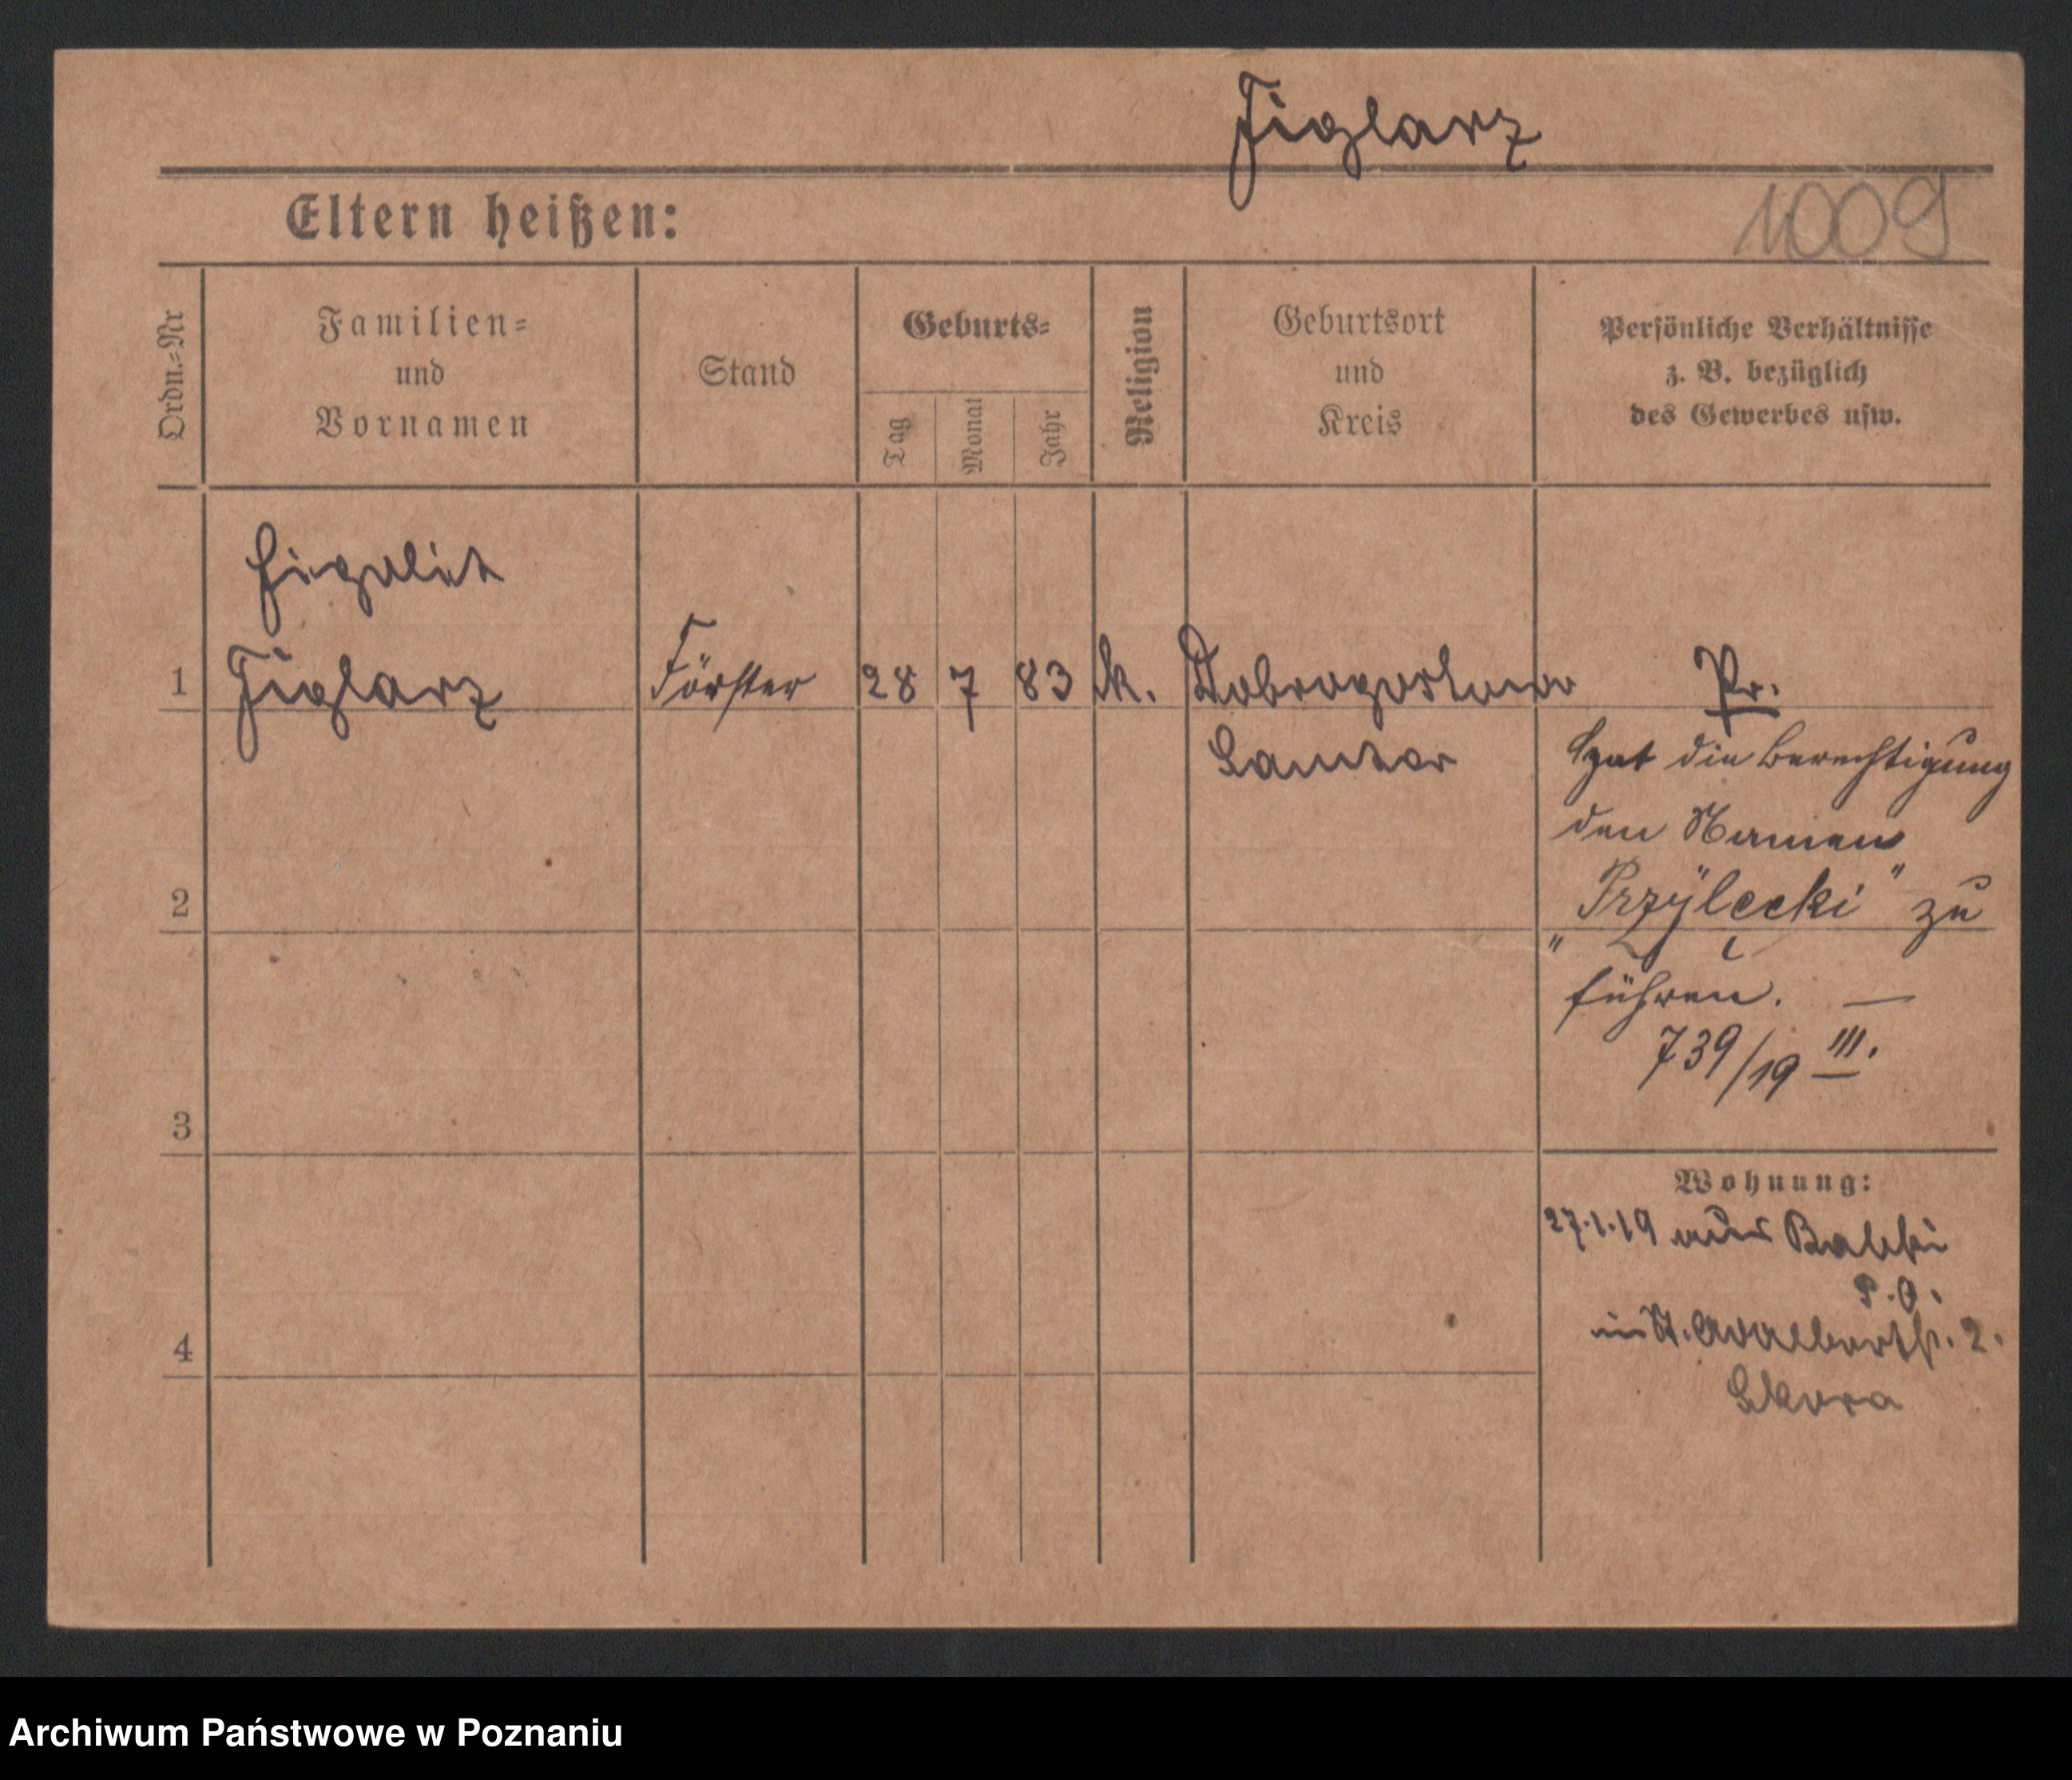 Figlarz
Eltern heißen:
1009
Ordn.-Nr
Familien-
und
Vornamen
Stand
Geburts-
Tag
Monat
Jahr
Religion
Geburtsort
und
Kreis
Persönliche Verhältnisse
z. B. bezüglich
des Gewerbes usw.
1
Figlarz
Förster
28
7
83
k.
Dobrogostowo
Samter
Pr.
Hat die Berechtigung
den Namen
2
„Przÿlecki" zu
führen. —
739/19 III.
3
Wohnung:
27.1.19 aus Babki
P. O.
in St. Adalbertstr. 2.
4
Skora
Archiwum Państwowe w Poznaniu